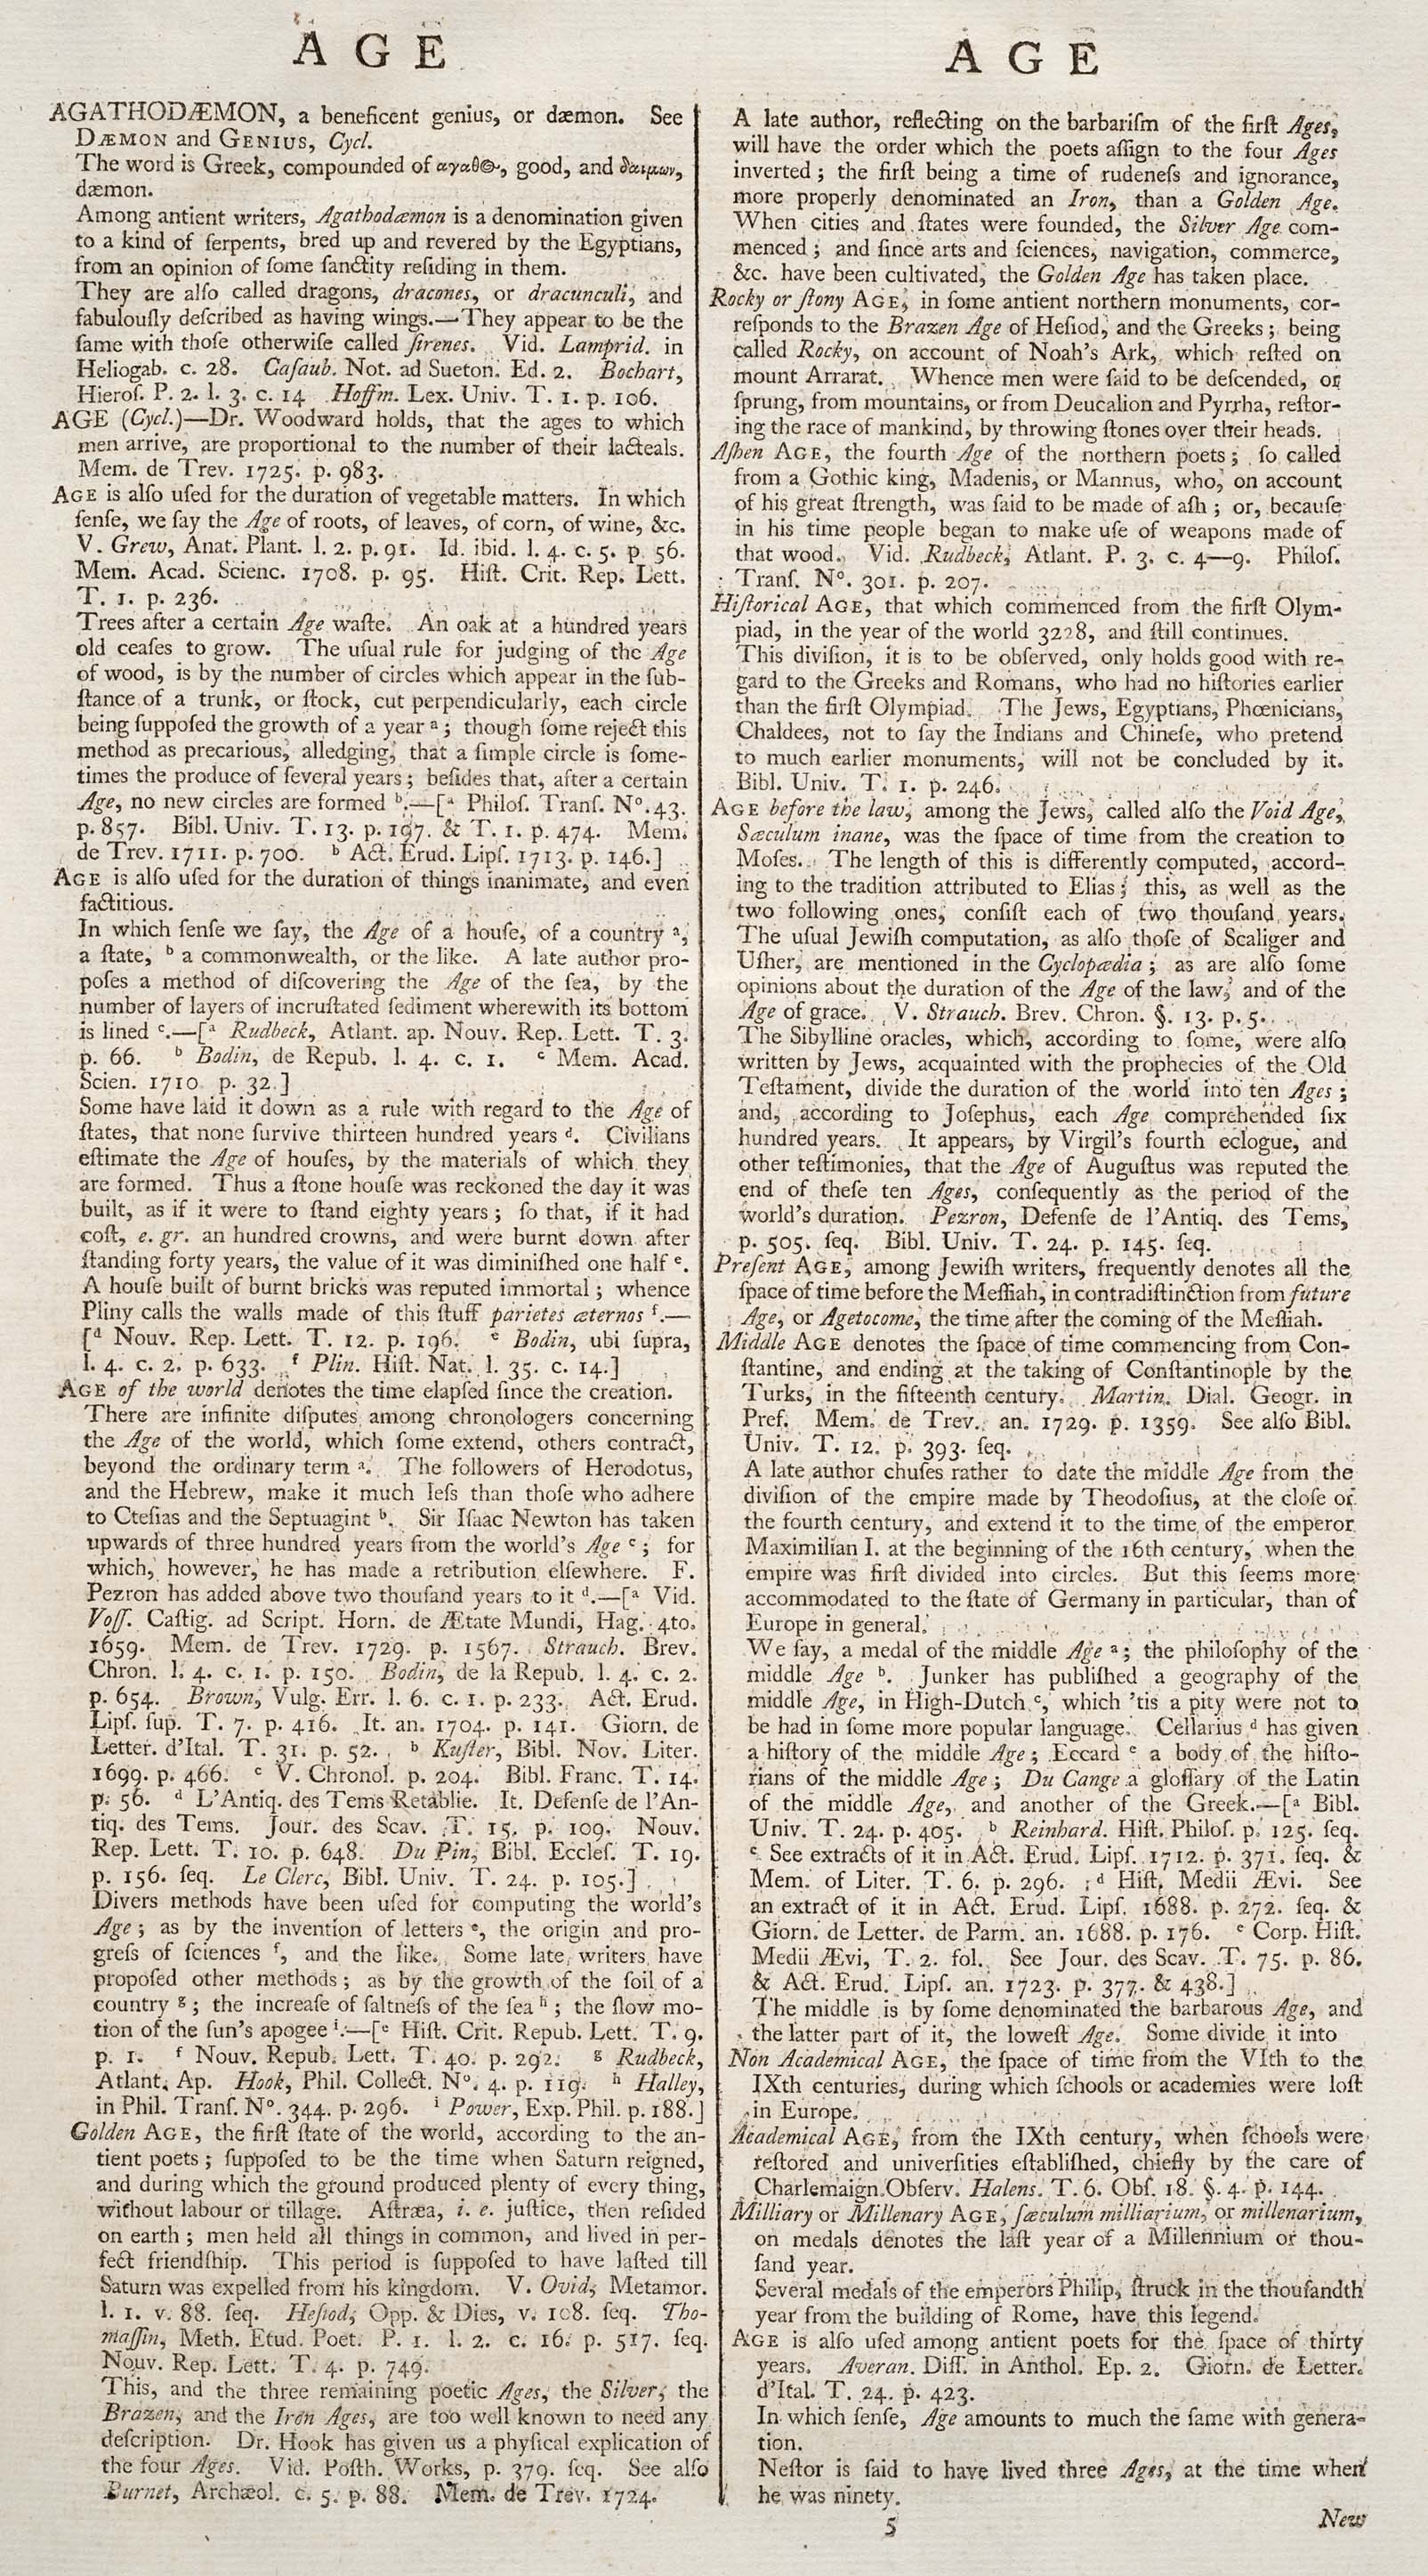 AGE
AGE
AGATHODÆMON, a beneficent genius, or dæmon. See
DÆMON and GENIUS, Cycl.
The word is Greek, compounded of αγαθ&, good, and δαιμων,
dæmon.
Among antient writers, Agathodæmon is a denomination given
to a kind of ſerpents, bred up and revered by the Egyptians,
from an opinion of ſome ſanctity reſiding in them.
They are alſo called dragons, dracones, or dracunculi, and
fabulouſly deſcribed as having wings.—They appear to be the
ſame with thoſe otherwiſe called ſirenes. Vid. Lamprid. in
Heliogab. c. 28. Caſaub. Not. ad Sueton. Ed. 2. Bochart,
Hieroſ. P. 2. l. 3. c. 14 Hoffm. Lex. Univ. T. 1. p. 106.
AGE (Cycl.)—Dr. Woodward holds, that the ages to which
men arrive, are proportional to the number of their lacteals.
Mem. de Trev. 1725. p. 983.
AGE is alſo uſed for the duration of vegetable matters. In which
ſenſe, we ſay the Age of roots, of leaves, of corn, of wine, &c.
V. Grew, Anat. Plant. l. 2. p. 91. Id. ibid. l. 4. c. 5. p. 56.
Mem. Acad. Scienc. 1708. p. 95. Hiſt. Crit. Rep. Lett.
T. 1. p. 236.
Trees after a certain Age waſte. An oak at a hundred years
old ceaſes to grow. The uſual rule for judging of the Age
of wood, is by the number of circles which appear in the ſub-
ſtance of a trunk, or ſtock, cut perpendicularly, each circle
being ſuppoſed the growth of a year a; though ſome reject this
method as precarious, alledging, that a ſimple circle is ſome-
times the produce of ſeveral years; beſides that, after a certain
Age, no new circles are formed b.—[a Philoſ. Tranſ. No. 43.
p. 857. Bibl. Univ. T. 13. p. 197. & T. 1. p. 474. Mem.
de Trev. 1711. p. 700. b Act. Erud. Lipſ. 1713. p. 146.]
AGE is alſo uſed for the duration of things inanimate, and even
factitious.
In which ſenſe we ſay, the Age of a houſe, of a country a,
a ſtate, b a commonwealth, or the like. A late author pro-
poſes a method of diſcovering the Age of the ſea, by the
number of layers of incruſtated ſediment wherewith its bottom
is lined c.—[a Rudbeck, Atlant. ap. Nouv. Rep. Lett. T. 3.
p. 66. b Bodin, de Repub. l. 4. c. 1. c Mem. Acad.
Scien. 1710 p. 32.]
Some have laid it down as a rule with regard to the Age of
ſtates, that none ſurvive thirteen hundred years d. Civilians
eſtimate the Age of houſes, by the materials of which they
are formed. Thus a ſtone houſe was reckoned the day it was
built, as if it were to ſtand eighty years; ſo that, if it had
coſt, e. gr. an hundred crowns, and were burnt down after
ſtanding forty years, the value of it was diminiſhed one half e.
A houſe built of burnt bricks was reputed immortal; whence
Pliny calls the walls made of this ſtuff parietes æternos f.—
[d Nouv. Rep. Lett. T. 12. p. 196. e Bodin, ubi ſupra,
l. 4. c. 2. p. 633. f Plin. Hiſt. Nat. l. 35. c. 14.]
AGE of the world denotes the time elapſed ſince the creation.
There are infinite diſputes among chronologers concerning
the Age of the world, which ſome extend, others contract,
beyond the ordinary term a. The followers of Herodotus,
and the Hebrew, make it much leſs than thoſe who adhere
to Cteſias and the Septuagint b. Sir Iſaac Newton has taken
upwards of three hundred years from the world's Age c; for
which, however, he has made a retribution elſewhere. F.
Pezron has added above two thouſand years to it d.—[a Vid.
Voſſ. Caſtig. ad Script. Horn. de Ætate Mundi, Hag. 4to.
1659. Mem. de Trev. 1729. p. 1567. Strauch. Brev.
Chron. l. 4. c. 1. p. 150. Bodin, de la Repub. l. 4. c. 2.
p. 654. Brown, Vulg. Err. l. 6. c. 1. p. 233. Act. Erud.
Lipſ. ſup. T. 7. p. 416. It. an. 1704. p. 141. Giorn. de
Letter. d'Ital. T. 31. p. 52. b Kuſter, Bibl. Nov. Liter.
1699. p. 466. c V. Chronol. p. 204. Bibl. Franc. T. 14.
p. 56. d L'Antiq. des Tems Retablie. It. Defenſe de l'An-
tiq. des Tems. Jour. des Scav. T. 15. p. 109. Nouv.
Rep. Lett. T. 10. p. 648. Du Pin, Bibl. Eccleſ. T. 19.
p. 156. ſeq. Le Clerc, Bibl. Univ. T. 24. p. 105.]
Divers methods have been uſed for computing the world's
Age; as by the invention of letters e, the origin and pro-
greſs of ſciences f, and the like. Some late writers have
propoſed other methods; as by the growth of the ſoil of a
country g; the increaſe of ſaltneſs of the ſea h; the ſlow mo-
tion of the ſun's apogee i.—[e Hiſt. Crit. Repub. Lett. T. 9.
p. 1. f Nouv. Repub. Lett. T. 40. p. 292. g Rudbeck,
Atlant. Ap. Hook, Phil. Collect. No. 4. p. 119. h Halley,
in Phil. Tranſ. No. 344. p. 296. i Power, Exp. Phil. p. 188.]
Golden AGE, the firſt ſtate of the world, according to the an-
tient poets; ſuppoſed to be the time when Saturn reigned,
and during which the ground produced plenty of every thing,
without labour or tillage. Aſtræa, i. e. juſtice, then reſided
on earth; men held all things in common, and lived in per-
fect friendſhip. This period is ſuppoſed to have laſted till
Saturn was expelled from his kingdom. V. Ovid, Metamor.
l. 1. v. 88. ſeq. Heſiod, Opp. & Dies, v. 108. ſeq. Tho-
maſſin, Meth. Etud. Poet. P. 1. l. 2. c. 16. p. 517. ſeq.
Nouv. Rep. Lett. T. 4. p. 749.
This, and the three remaining poetic Ages, the Silver, the
Brazen, and the Iron Ages, are too well known to need any
deſcription. Dr. Hook has given us a phyſical explication of
the four Ages. Vid. Poſth. Works, p. 379. ſeq. See alſo
Burnet, Archæol. c. 5. p. 88. Mem. de Trev. 1724.
A late author, reflecting on the barbariſm of the firſt Ages,
will have the order which the poets aſſign to the four Ages
inverted; the firſt being a time of rudeneſs and ignorance,
more properly denominated an Iron, than a Golden Age.
When cities and ſtates were founded, the Silver Age com-
menced; and ſince arts and ſciences, navigation, commerce,
&c. have been cultivated, the Golden Age has taken place.
Rocky or ſtony AGE, in ſome antient northern monuments, cor-
reſponds to the Brazen Age of Heſiod, and the Greeks; being
called Rocky, on account of Noah's Ark, which reſted on
mount Arrarat. Whence men were ſaid to be deſcended, or
ſprung, from mountains, or from Deucalion and Pyrrha, reſtor-
ing the race of mankind, by throwing ſtones over their heads.
Aſhen AGE, the fourth Age of the northern poets; ſo called
from a Gothic king, Madenis, or Mannus, who, on account
of his great ſtrength, was ſaid to be made of aſh; or, becauſe
in his time people began to make uſe of weapons made of
that wood. Vid. Rudbeck, Atlant. P. 3. c. 4—9. Philoſ.
Tranſ. No. 301. p. 207.
Hiſtorical AGE, that which commenced from the firſt Olym-
piad, in the year of the world 3228, and ſtill continues.
This diviſion, it is to be obſerved, only holds good with re-
gard to the Greeks and Romans, who had no hiſtories earlier
than the firſt Olympiad. The Jews, Egyptians, Phœnicians,
Chaldees, not to ſay the Indians and Chineſe, who pretend
to much earlier monuments, will not be concluded by it.
Bibl. Univ. T. 1. p. 246.
AGE before the law, among the Jews, called alſo the Void Age,
Sæculum inane, was the ſpace of time from the creation to
Moſes. The length of this is differently computed, accord-
ing to the tradition attributed to Elias; this, as well as the
two following ones, conſiſt each of two thouſand years.
The uſual Jewiſh computation, as alſo thoſe of Scaliger and
Uſher, are mentioned in the Cyclopædia; as are alſo ſome
opinions about the duration of the Age of the law, and of the
Age of grace. V. Strauch. Brev. Chron. §. 13. p. 5.
The Sibylline oracles, which, according to ſome, were alſo
written by Jews, acquainted with the prophecies of the Old
Teſtament, divide the duration of the world into ten Ages;
and, according to Joſephus, each Age comprehended ſix
hundred years. It appears, by Virgil's fourth eclogue, and
other teſtimonies, that the Age of Auguſtus was reputed the
end of theſe ten Ages, conſequently as the period of the
world's duration. Pezron, Defenſe de l'Antiq. des Tems,
p. 505. ſeq. Bibl. Univ. T. 24. p. 145. ſeq.
Preſent AGE, among Jewiſh writers, frequently denotes all the
ſpace of time before the Meſſiah, in contradiſtinction from future
Age, or Agetocome, the time after the coming of the Meſſiah.
Middle AGE denotes the ſpace of time commencing from Con-
ſtantine, and ending at the taking of Conſtantinople by the
Turks, in the fifteenth century. Martin. Dial. Geogr. in
Pref. Mem. de Trev. an. 1729. p. 1359. See alſo Bibl.
Univ. T. 12. p. 393. ſeq.
A late author chuſes rather to date the middle Age from the
diviſion of the empire made by Theodoſius, at the cloſe of
the fourth century, and extend it to the time of the emperor
Maximilian I. at the beginning of the 16th century, when the
empire was firſt divided into circles. But this ſeems more
accommodated to the ſtate of Germany in particular, than of
Europe in general.
We ſay, a medal of the middle Age a; the philoſophy of the
middle Age b. Junker has publiſhed a geography of the
middle Age, in High-Dutch c, which 'tis a pity were not to
be had in ſome more popular language. Cellarius d has given
a hiſtory of the middle Age; Eccard e a body of the hiſto-
rians of the middle Age; Du Cange a gloſſary of the Latin
of the middle Age, and another of the Greek.—[a Bibl.
Univ. T. 24. p. 405. b Reinhard. Hiſt. Philoſ. p. 125. ſeq.
c See extracts of it in Act. Erud. Lipſ. 1712. p. 371. ſeq. &
Mem. of Liter. T. 6. p. 296. d Hiſt. Medii Ævi. See
an extract of it in Act. Erud. Lipſ. 1688. p. 272. ſeq. &
Giorn. de Letter. de Parm. an. 1688. p. 176. e Corp. Hiſt.
Medii Ævi, T. 2. fol. See Jour. des Scav. T. 75. p. 86.
& Act. Erud. Lipſ. an. 1723. p. 377. & 438.]
The middle is by ſome denominated the barbarous Age, and
the latter part of it, the loweſt Age. Some divide it into
Non Academical AGE, the ſpace of time from the VIth to the
IXth centuries, during which ſchools or academies were loſt
in Europe.
Academical AGE, from the IXth century, when ſchools were
reſtored and univerſities eſtabliſhed, chiefly by the care of
Charlemaign. Obſerv. Halens. T. 6. Obſ. 18. §. 4. p. 144.
Milliary or Millenary AGE, ſæculum milliarium, or millenarium,
on medals denotes the laſt year of a Millennium or thou-
ſand year.
Several medals of the emperors Philip, ſtruck in the thouſandth
year from the building of Rome, have this legend.
AGE is alſo uſed among antient poets for the ſpace of thirty
years. Averan. Diſſ. in Anthol. Ep. 2. Giorn. de Letter.
d'Ital. T. 24. p. 423.
In which ſenſe, Age amounts to much the ſame with genera-
tion.
Neſtor is ſaid to have lived three Ages, at the time when
he was ninety.
5
New